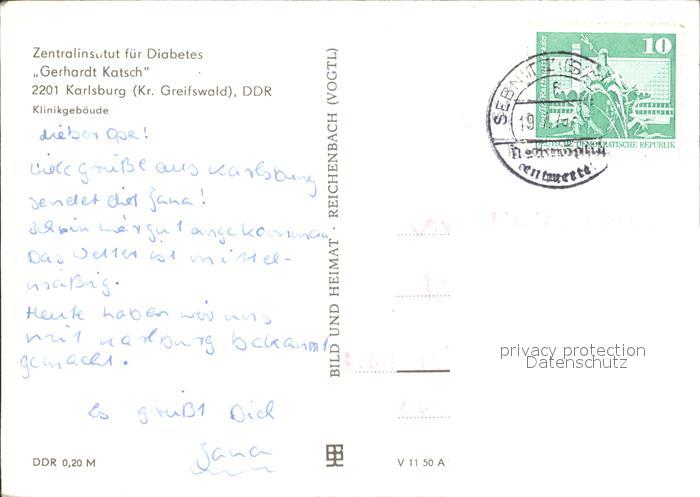 Zentralinstitut für Diabetes
„Gerhardt Katsch"
2201 Karlsburg (Kr. Greifswald), DDR
Klinikgebäude
Lieber Opa!
Viele Grüße aus Karlsburg
sendet dir Jana!
Ich bin hier gut angekommen
Das Wetter ist mittel-
mäßig.
Heute haben wir uns
mit Karlsburg bekannt
gemacht.
Es grüßt Dich
Jana
DDR 0,20 M
BILD UND HEIMAT · REICHENBACH (VOGTL)
V 11 50 A
10
DEUTSCHE DEMOKRATISCHE REPUBLIK
SEBNITZ
Nachträglich
entwertet
privacy protection
Datenschutz